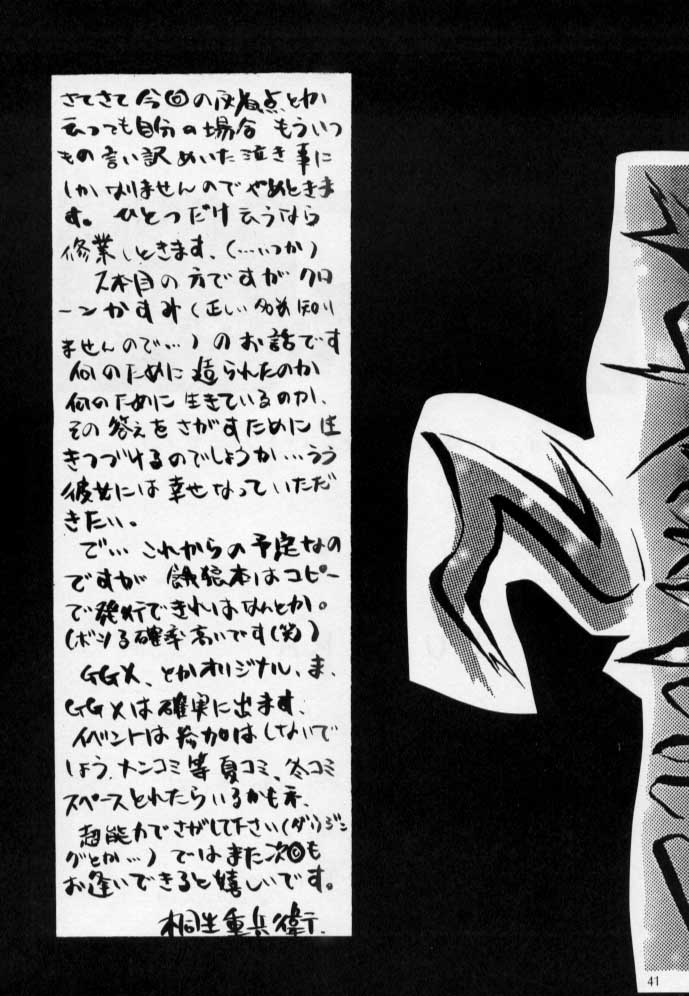 さてさて今回の反省点とか
云っても自分の場合 もういつ
もの言い訳めいた泣き事に
しかなりませんのでやめときま
す。ひとつだけ云うなら
修業しときます、(……いつか)
2本目の方ですがクロ
ーンかすみ(正しい名前知り
ませんので…)のお話です
何のために造られたのか
何のために生きているのか、
その答えをさがすために生
きつづけるのでしょうか…うう
彼女には幸せなっていただ
きたい。
で… これからの予定なの
ですが 餓狼本はコピー
で発行できればなんとか。
(ボツる確率高いです(笑)
GGX、とかオリジナル、ま、
GGXは確実に出ます、
イベントは参加はしないで
しょう、ナンコミ等夏コミ、冬コミ
スペースとれたらいるかもネ、
超能力でさがして下さい(ダウジン
グとか…)ではまた次回も
お逢いできると嬉しいです。
桐生重兵衛.
41